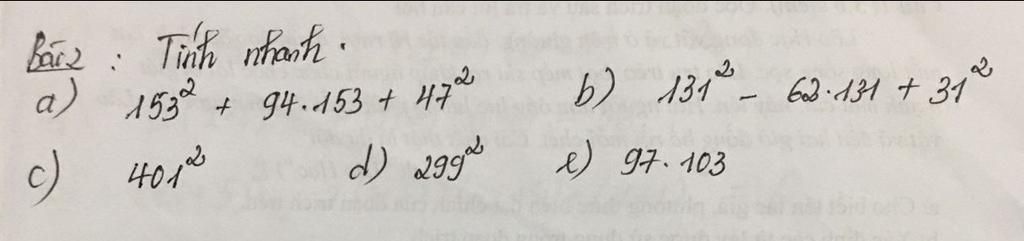 Bài 2 : Tính nhanh.
a) 153² + 94.153 + 47² b) 131² - 62.131 + 31²
c) 401² d) 299² e) 97.103